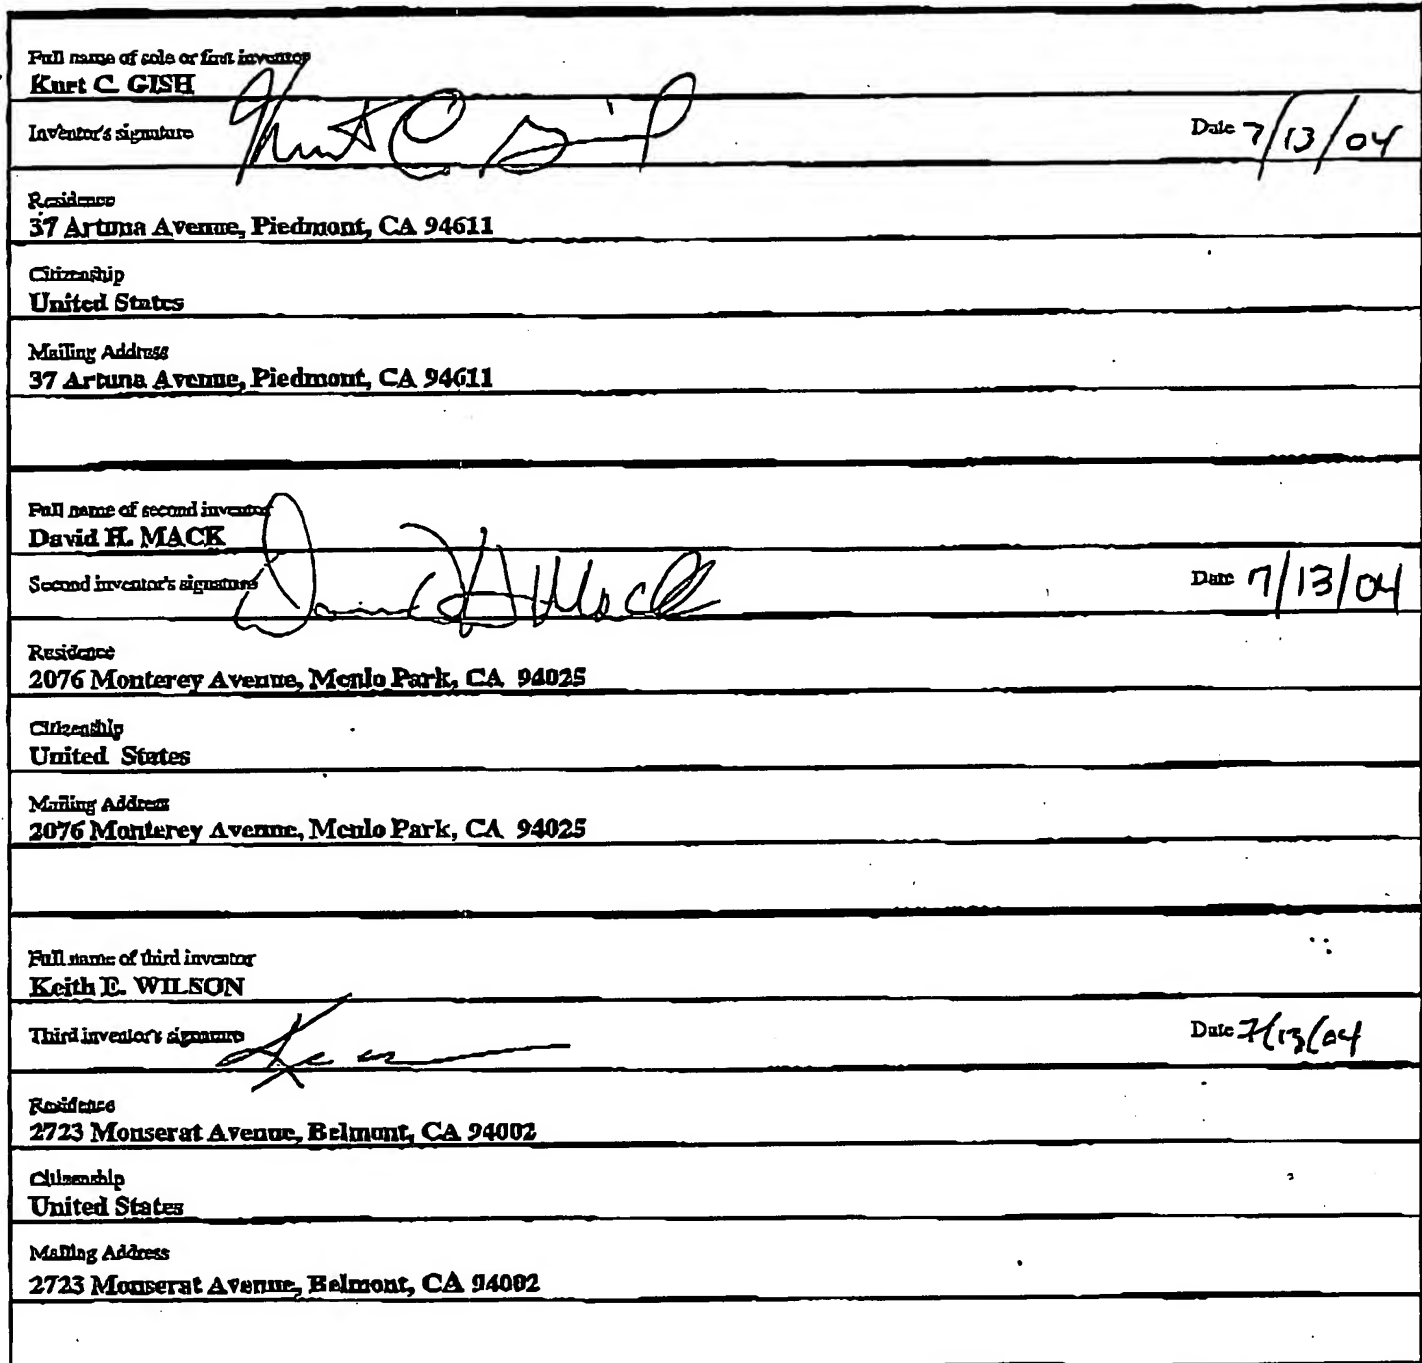 Full name of sole or first inventor
Kurt C. GISH
Inventor's signature Kurt C Gish Date 7/13/04
Residence
37 Artuna Avenue, Piedmont, CA 94611
Citizenship
United States
Mailing Address
37 Artuna Avenue, Piedmont, CA 94611
Full name of second inventor
David H. MACK
Second inventor's signature David H Mack Date 7/13/04
Residence
2076 Monterey Avenue, Menlo Park, CA 94025
Citizenship
United States
Mailing Address
2076 Monterey Avenue, Menlo Park, CA 94025
Full name of third inventor
Keith E. WILSON
Third inventor's signature Date 7/13/04
Residence
2723 Monserat Avenue, Belmont, CA 94002
Citizenship
United States
Mailing Address
2723 Monserat Avenue, Belmont, CA 94002